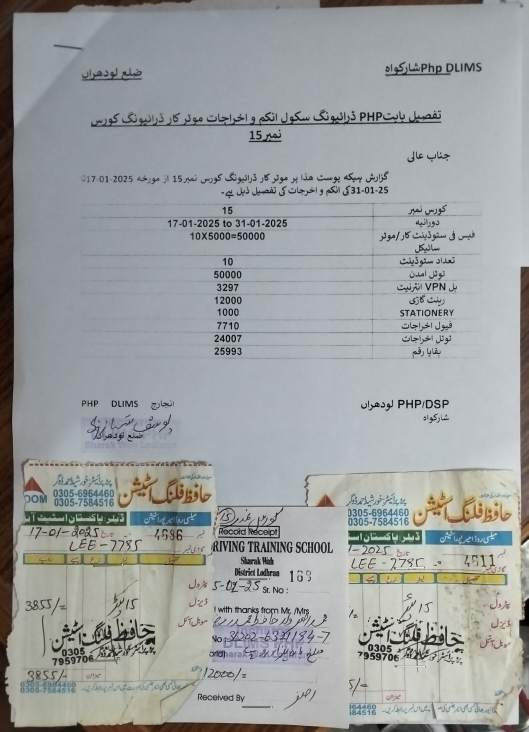 ضلع لودھراں
Php DLIMS شارکواہ
تفصیل بابت PHP ڈرائیونگ سکول انکم و اخراجات موٹر کار ڈرائیونگ کورس
نمبر 15
جناب عالی
گزارش ہیکہ پوسٹ ھذا پر موٹر کار ڈرائیونگ کورس نمبر 15 از مورخہ 17-01-2025
31-01-25 کی انکم و اخرجات کی تفصیل ذیل ہے۔
کورس نمبر 15
دورانیہ 17-01-2025 to 31-01-2025
فیس فی سٹوڈینٹ کار/موٹر سائیکل 10X5000=50000
تعداد سٹوڈینٹ 10
ٹوٹل آمدن 50000
بل VPN انٹرنیٹ 3297
رینٹ گاڑی 12000
STATIONERY 1000
فیول اخراجات 7710
ٹوٹل اخراجات 24007
بقایا رقم 25993
PHP DLIMS انچارج
ضلع لودھراں
PHP/DSP لودھراں
شارکواہ
حافظ فلنگ اسٹیشن
0305-6964460
0305-7584516
17-01-2025
4696
LEE-7785
پٹرول
ڈیزل
موبل آئل
3855/=
حافظ فلنگ اسٹیشن
0305
7959706
میزان
3855/-
Record Receipt
RIVING TRAINING SCHOOL
Sharak Wah
District Lodhran
169
5-01-25 Sr. No :
with thanks from Mr. /Mrs
12000/=
Received By
حافظ فلنگ اسٹیشن
0305-6964460
0305-7584516
1-2025
4611
LEE-7785
پٹرول
ڈیزل
موبل آئل
حافظ فلنگ اسٹیشن
0305
7959706
میزان